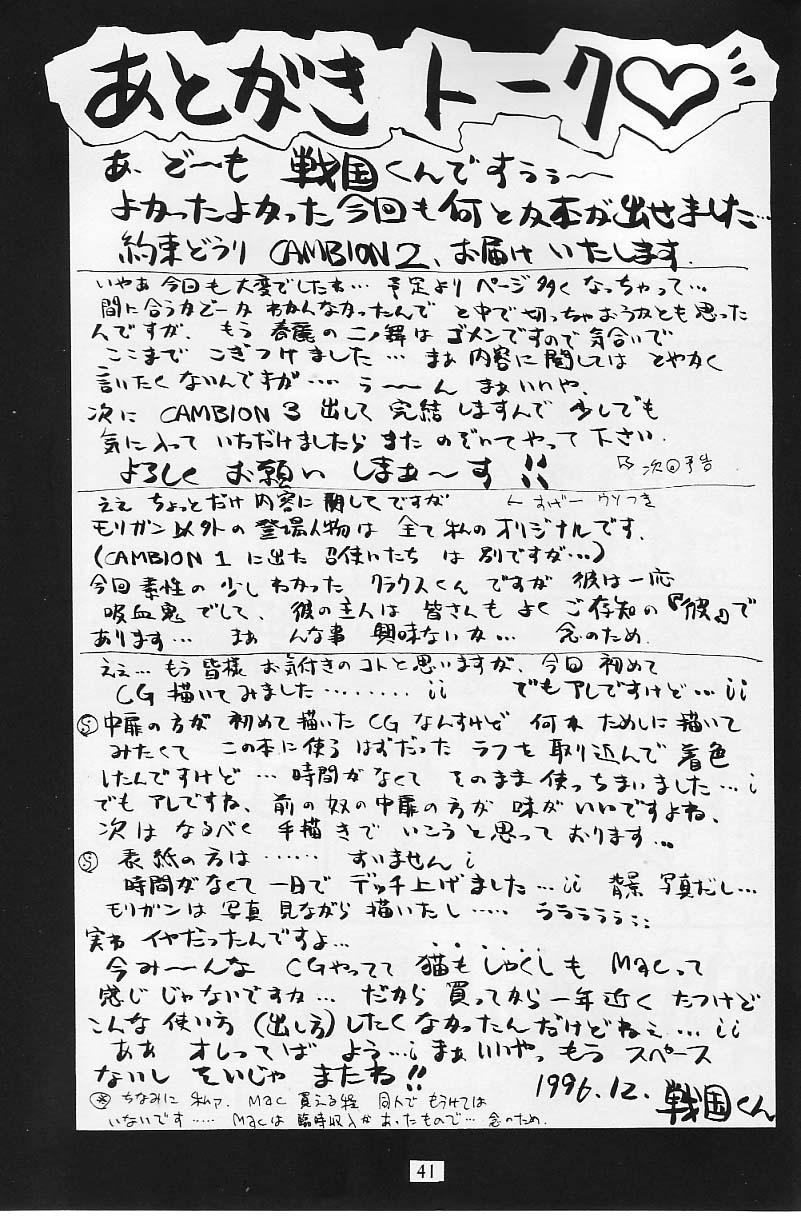 あとがき トーク♡
あ、ど〜も 戦国くんですぅぅ〜
よかったよかった今回も何とか本が出せました…
約束どうり CAMBION 2、お届けいたします.
いやあ今回も大変でしたね… 予定より ページ多くなっちゃって…
間に合うかどーか わかんなかったんで と中で切っちゃおうかとも思った
んですが、もう 春麗の二ノ舞は ゴメンですので気合いで
ここまで こぎつけました… まぁ 内容に関しては とやかく
言いたくないんですが…. う〜〜ん まぁいいや、
次に CAMBION 3 出して 完結しますんで 少しでも
気に入って いただけましたら また のぞいてやって下さい.
よろしく お願い しまぁ〜す!!
次回予告
ええ ちょっとだけ内容に関してですが
モリガン以外の登場人物は 全て私のオリジナルです.
(CAMBION 1 に出た 召使いたち は 別ですが…)
今回素性の少しわかった クラウスくん ですが 彼は一応
吸血鬼でして、彼の主人は皆さんもよくご存知の『彼』で
あります… まぁ んな事 興味ないか… 念のため.
ええ… もう皆様 お気付きのコトと思いますが、今回 初めて
CG 描いてみました……… ;; でもアレですけど… ;;
Ⓢ中扉の方が 初めて描いた CG なんすけど 何か ためしに描いて
みたくて この本に使うはずだった ラフを取り込んで着色
したんですけど… 時間がなくて そのまま使っちまいました… ;
でもアレですね、前の奴の中扉の方が 味がいいですよね、
次は なるべく 手描きで いこうと思って おります…
Ⓢ 表紙の方は …… すいません ;
時間がなくて 一日で デッチ上げました… ;; 背景 写真だし…
モリガンは写真見ながら描いたし ….. ううううう ;;
実わ イヤだったんですよ… . . . . . .
今み〜〜んな CGやってて 猫もしゃくしも Macって
感じじゃないですか… だから 買ってから一年近くたつけど
こんな使い方(出し方)したくなかったんだけどねぇ… ;;
ああ オレってば よう… ; まぁいいやっ もう スペース
ないし そいじゃ またね!!
1996.12. 戦国くん
※ ちなみに 私ァ、Mac 買える程 同人で もうけては
いないです ….. Macは臨時収入があったもので… 念のため.
41